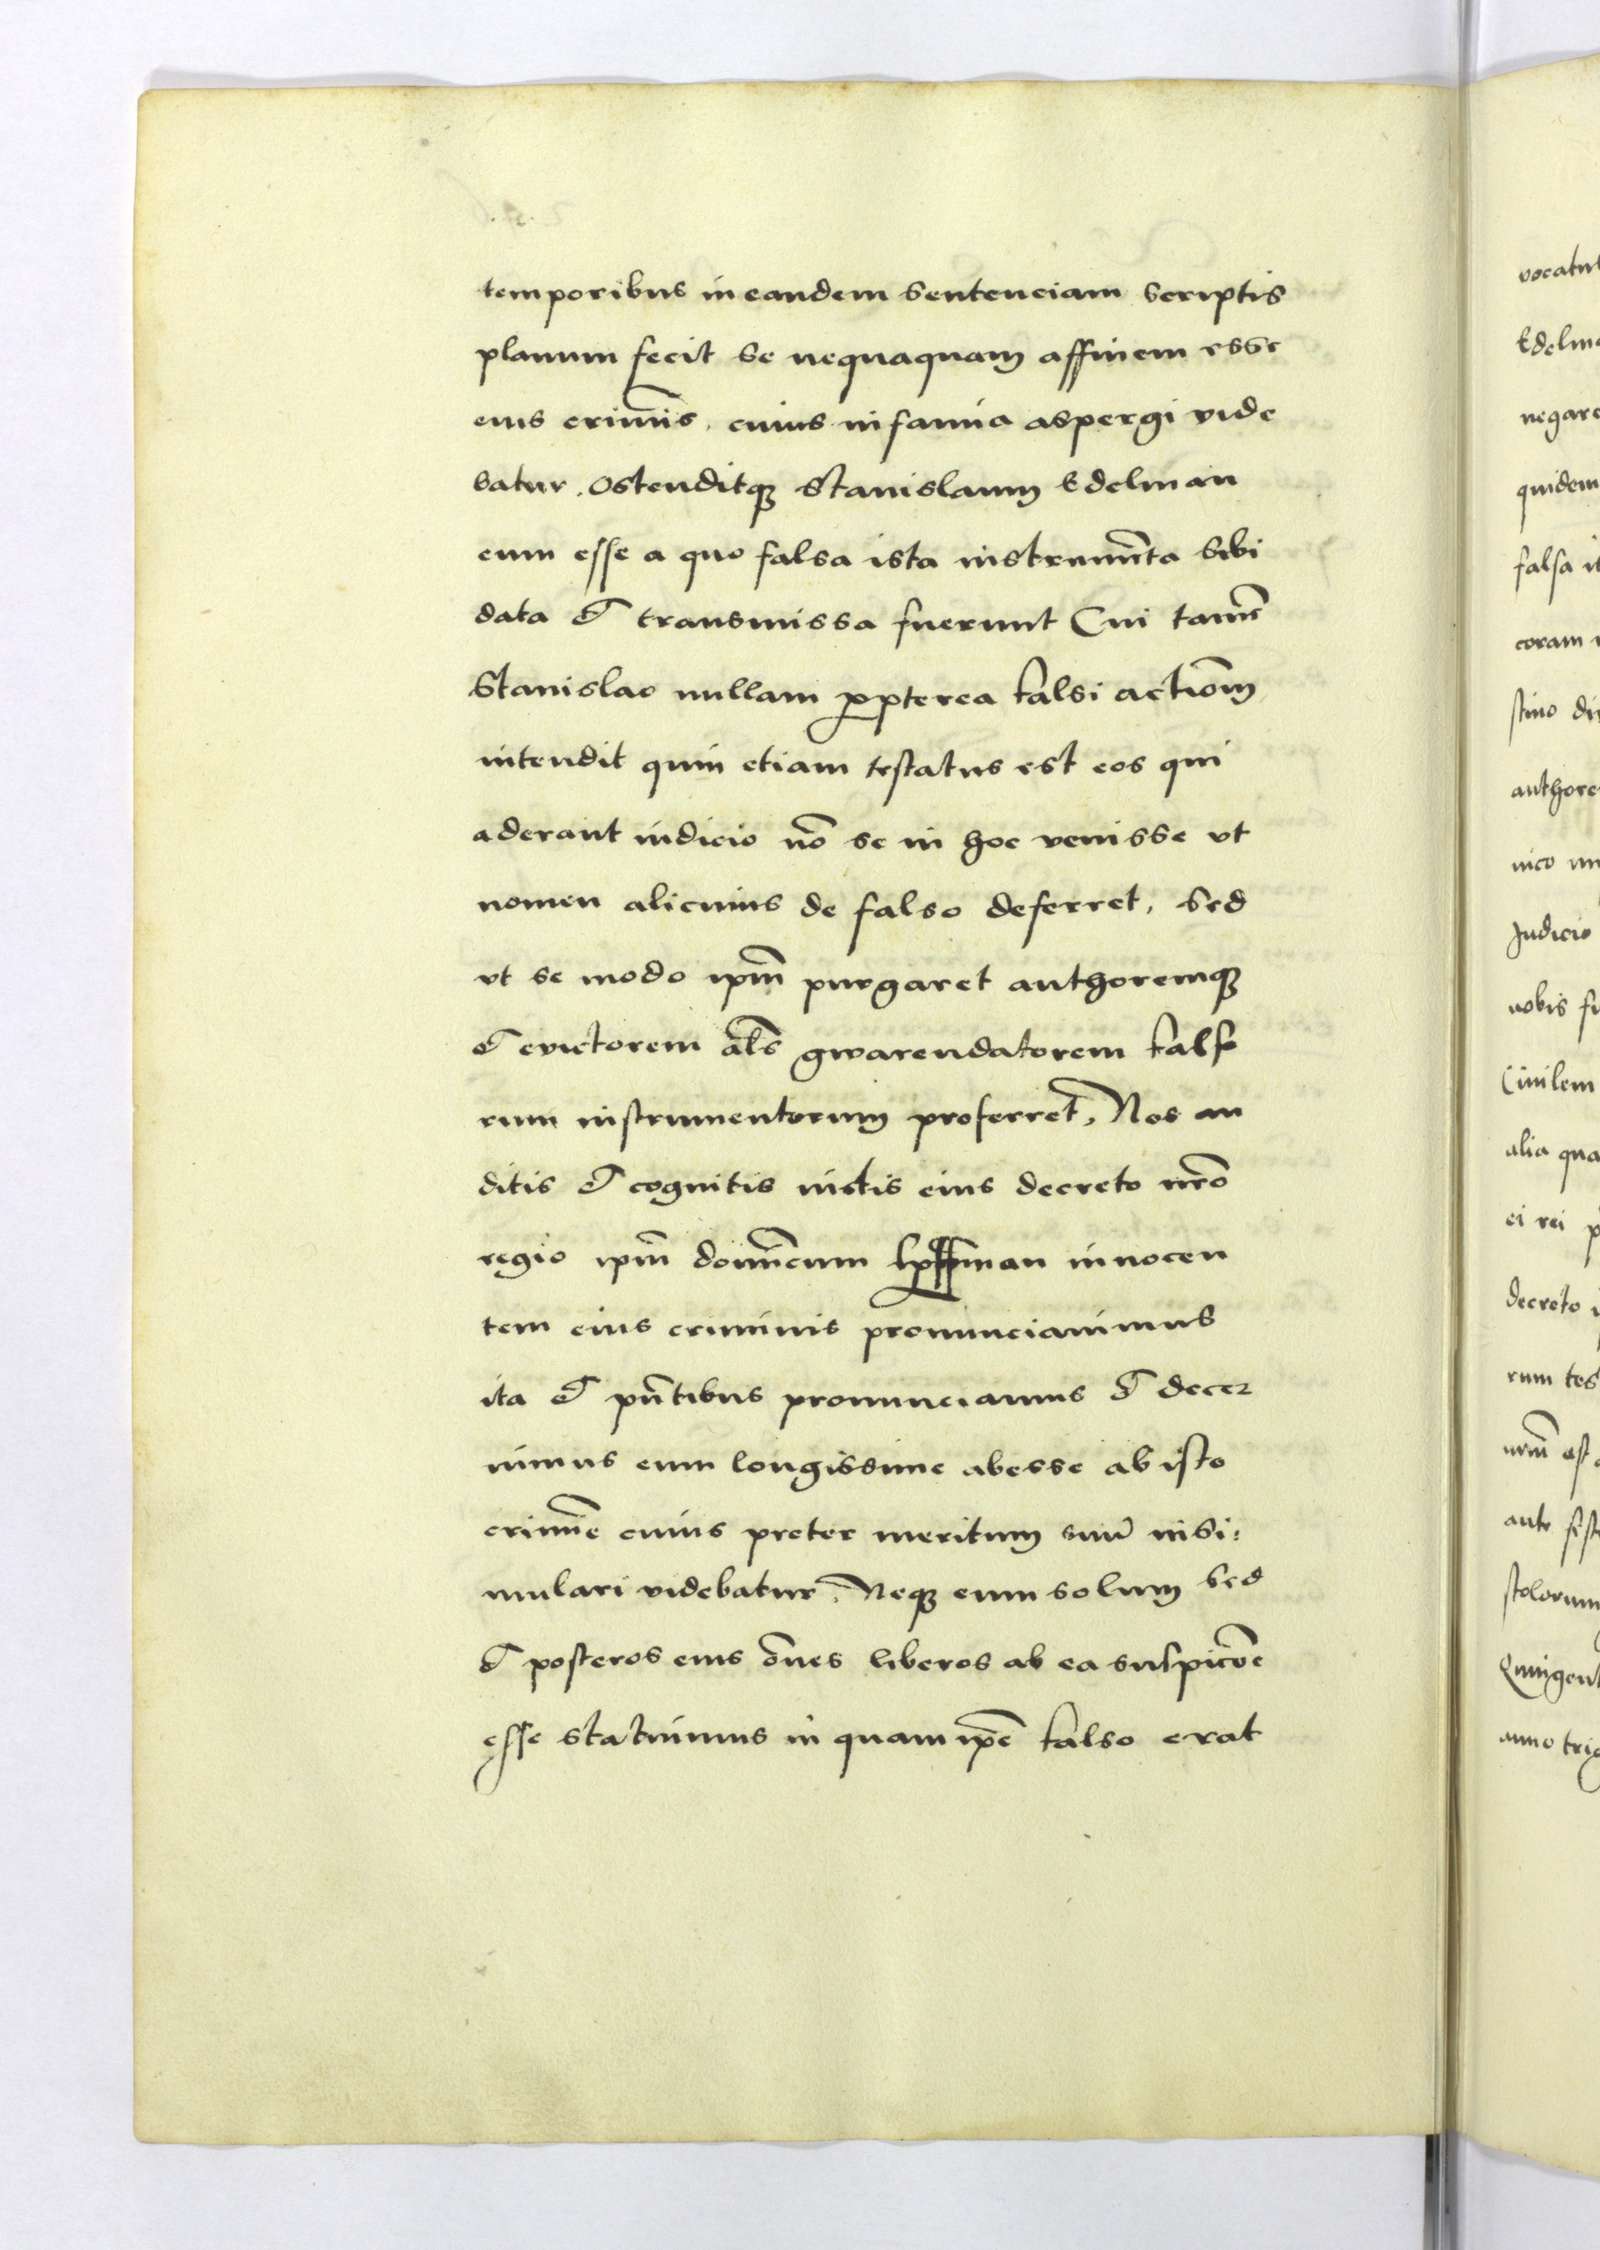 temporibus in eandem sentenciam scriptis
planum fecit se nequaquam affinem esse
eius crim̄is, cuius infamia aspergi vide
batur. Ostenditqꝫ Stanislaum Edelman
eum esse a quo falsa ista instrumn̄ta sibi
data & transmissa fuerunt Cui tamē
Stanislao nullam ꝓpterea falsi actiōm
intendit quin etiam testatus est eos qui
aderant iudicio nō se in hoc venisse vt
nomen alicuius de falso deferret, sed
vt se modo ipm̄ purgaret authoremqꝫ
& evictorem al̄s gwarendatorem falso
rum instrumentorum proferret, Nos au
ditis & cognitis iustis eius decreto nr̄o
regio ipm̄ domīcum man innocen
tem eius criminis pronunciavimus
ita & pn̄tibus pronunciamus & decer
nimus eum longissime abesse ab isto
crimīe cuius preter meritum suū insi:
mulari videbatur, Neqꝫ eum solum sed
& posteros eius ōnes liberos ab ea suspicōe
esse statuimus in quam ip̄e falso erat
vocatu
Edelma
negare
quidem
falsa is
coram
stino di
authore
nico
Judicio
nobis fu
Civilem
alia qua
ei rei p
decreto i
rum tes
nrm̄ est
ante sist
stolorum
Quingent
anno trig